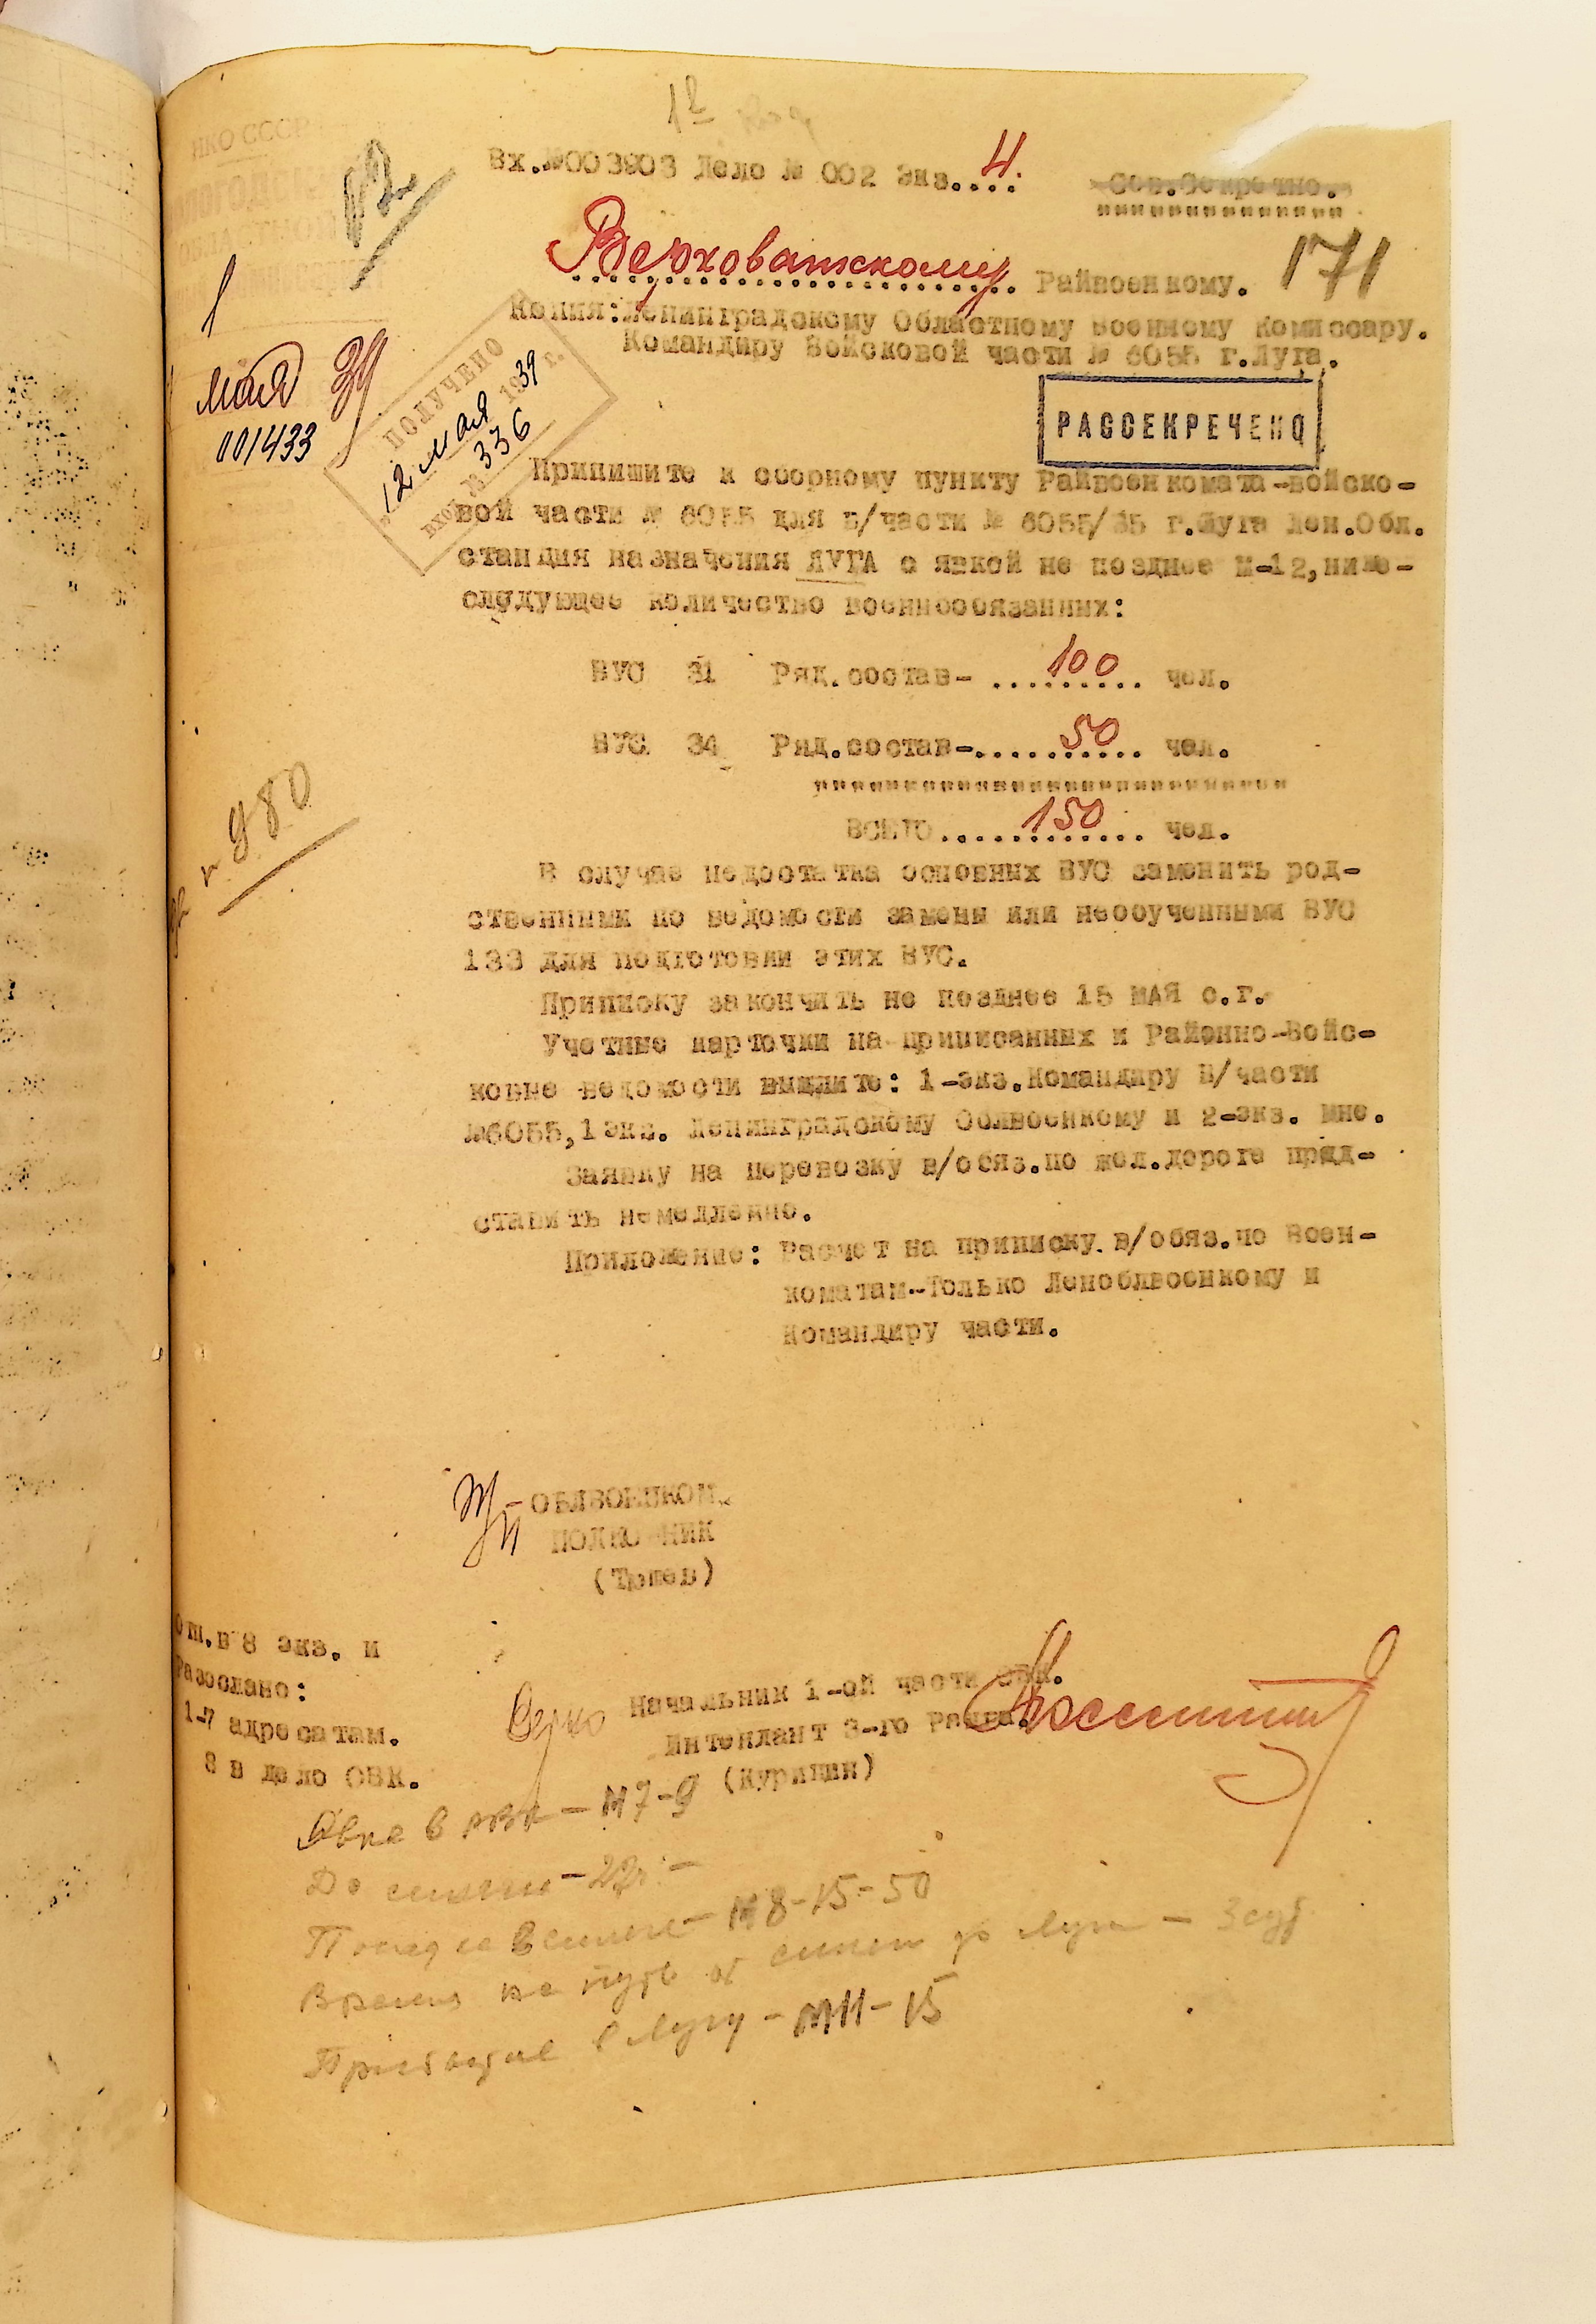 1й
Вх.№003903 Дело № 002 Экз....4.
Сов.Секретно.
НКО СССР
171
Верховатскому Райвоенкому.
Копия: Ленинградскому Областному Военному Комиссару.
Командиру Войсковой части № 6055 г.Луга.
1
мая 39
001433
ПОЛУЧЕНО
12 мая 1939 г.
вход № 336
РАССЕКРЕЧЕНО
Припишите к сборному пункту Райвоенкомата-войско-
вой части № 6055 для В/части № 6055/35 г.Луга Лен.Обл.
станция назначения ЛУГА с явкой не позднее М-12,ниже-
следующее количество военнообязанных:
ВУС 31 Ряд.состав- ...100... чел.
ВУС 34 Ряд.состав-....50.... чел.
ВСЕГО.....150..... чел.
980
В случае недостатка основных ВУС заменить род-
ственными по ведомости замены или необученными ВУС
133 для подготовки этих ВУС.
Приписку закончить не позднее 15 МАЯ с.г.
Учетные карточки на приписанных и Районно-Войс-
ковые ведомости вышлите: 1-экз.Командиру В/части
№6055,1 экз. Ленинградскому Облвоенкому и 2-экз. мне.
Заявку на перевозку в/обяз.по жел.дороге пред-
ставить немедленно.
Приложение: Расчет на приписку в/обяз.по Воен-
коматам.-Только Леноблвоенкому и
Командиру части.
ОБЛВОЕНКОМ
ПОЛКОВНИК
От.в 8 экз. и
Разослано:
1-7 адресатам.
8 в дело ОВК.
Верно
Начальник 1-ой части ОВК.
Интендант 3-го Ранга.
(Курицин)
Явка в РВК - М7-9
До станции - 22ч. -
Посадка в вагоны - М8-15-50
Время на путь от станции до Луги - 3 сут.
Прибытие в Лугу - М11-15